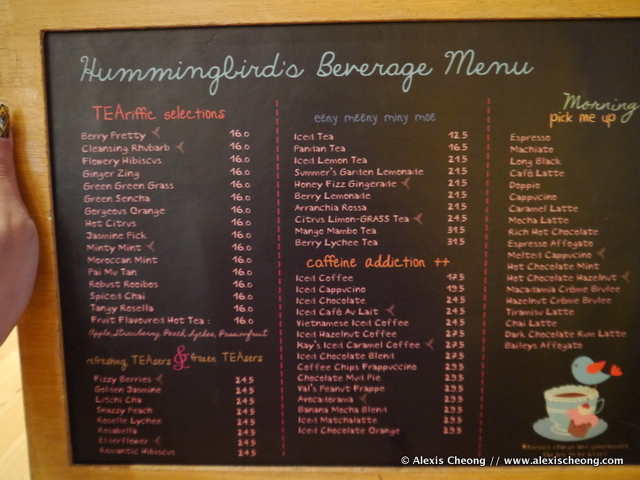 Hummingbird's Beverage Menu
TEAriffic selections
Berry Pretty 16.0
Cleansing Rhubarb 16.0
Flowery Hibiscus 16.0
Ginger Zing 16.0
Green Green Grass 16.0
Green Sencha 16.0
Gorgeous Orange 16.0
Hot Citrus 16.0
Jasmine Fick 16.0
Minty Mint 16.0
Moroccan Mint 16.0
Pai Mu Tan 16.0
Robust Rooibos 16.0
Spiced Chai 16.0
Tangy Rosella 16.0
Fruit Flavoured Hot Tea : 16.0
Apple, Strawberry, Peach, Lychee, Passionfruit
refreshing TEAsers & frozen TEAsers
Fizzy Berries 24.5
Golden Jasmine 24.5
Litchi Cha 24.5
Snazzy Peach 24.5
Roselle Lychee 24.5
Rosabella 24.5
Elderflower 24.5
Romantic Hibiscus 24.5
eeny meeny miny moe
Iced Tea 12.5
Pandan Tea 16.5
Iced Lemon Tea 21.5
Summer's Garden Lemonade 21.5
Honey Fizz Gingerade 21.5
Berry Lemonade 21.5
Arranchia Rossa 21.5
Citrus Limon-GRASS Tea 24.5
Mango Mambo Tea 31.5
Berry Lychee Tea 31.5
caffeine addiction ++
Iced Coffee 17.5
Iced Cappucino 19.5
Iced Chocolate 24.5
Iced Café Au Lait 24.5
Vietnamese Iced Coffee 24.5
Iced Hazelnut Coffee 27.5
Kay's Iced Caramel Coffee 27.5
Iced Chocolate Blend 27.5
Coffee Chips Frappuccino 29.5
Chocolate Mud Pie 29.5
Val's Peanut Frappe 29.5
Avocaderama 29.5
Banana Mocha Blend 29.5
Iced Matchalatte 29.5
Iced Chocolate Orange 29.5
Morning
pick me up
Espresso
Machiato
Long Black
Café Latte
Doppio
Cappucino
Caramel Latte
Mocha Latte
Rich Hot Chocolate
Espresso Affogato
Melted Cappucino
Hot Chocolate Mint
Hot Chocolate Hazelnut
Macadamia Crème Brulee
Hazelnut Crème Brulee
Tiramisu Latte
Chai Latte
Dark Chocolate Rum Latte
Baileys Affogato
© Alexis Cheong // www.alexischeong.com